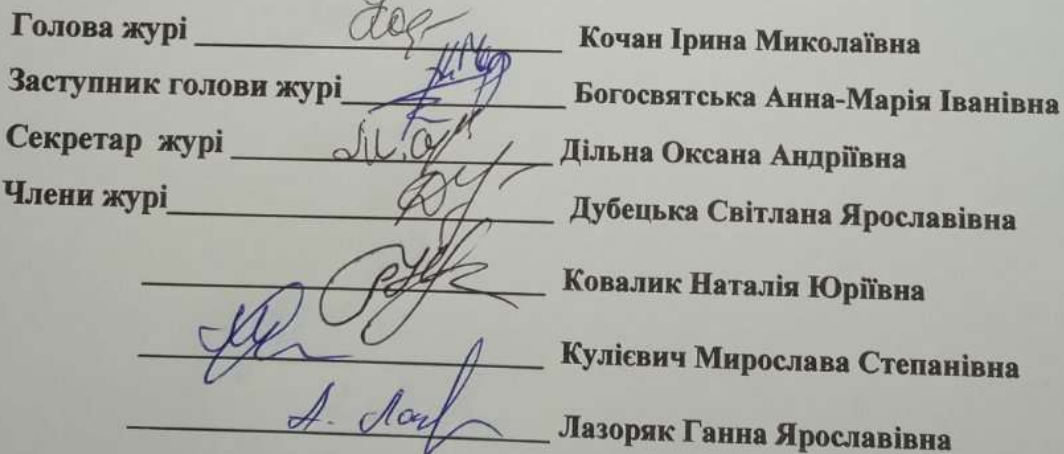 Голова журі Кочан Ірина Миколаївна
Заступник голови журі Богосвятська Анна-Марія Іванівна
Секретар журі Дільна Оксана Андріївна
Члени журі Дубецька Світлана Ярославівна
Ковалик Наталія Юріївна
Кулієвич Мирослава Степанівна
Лазоряк Ганна Ярославівна